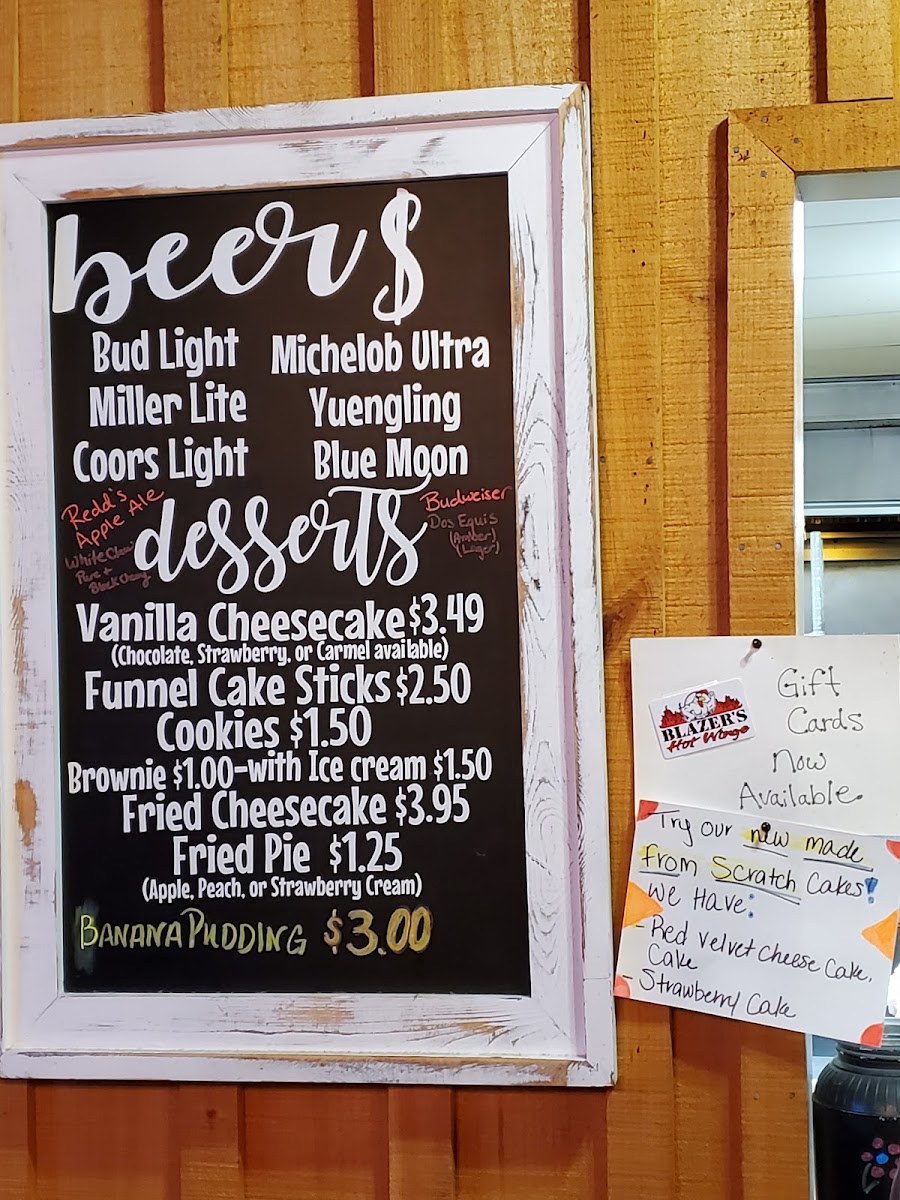 beer$
Bud Light Michelob Ultra
Miller Lite Yuengling
Coors Light Blue Moon
Redd's
Apple Ale
White Claw
Pure +
Black Cherry
desserts
Budweiser
Dos Equis
(Amber)
(Lager)
Vanilla Cheesecake $3.49
(Chocolate, Strawberry, or Carmel available)
Funnel Cake Sticks $2.50
Cookies $1.50
Brownie $1.00-with Ice cream $1.50
Fried Cheesecake $3.95
Fried Pie $1.25
(Apple, Peach, or Strawberry Cream)
Banana Pudding $3.00
BLAZER'S
Hot Wings
Gift
Cards
Now
Available.
Try our new made
from Scratch Cakes!
We Have:
- Red Velvet Cheese Cake,
Cake
- Strawberry Cake